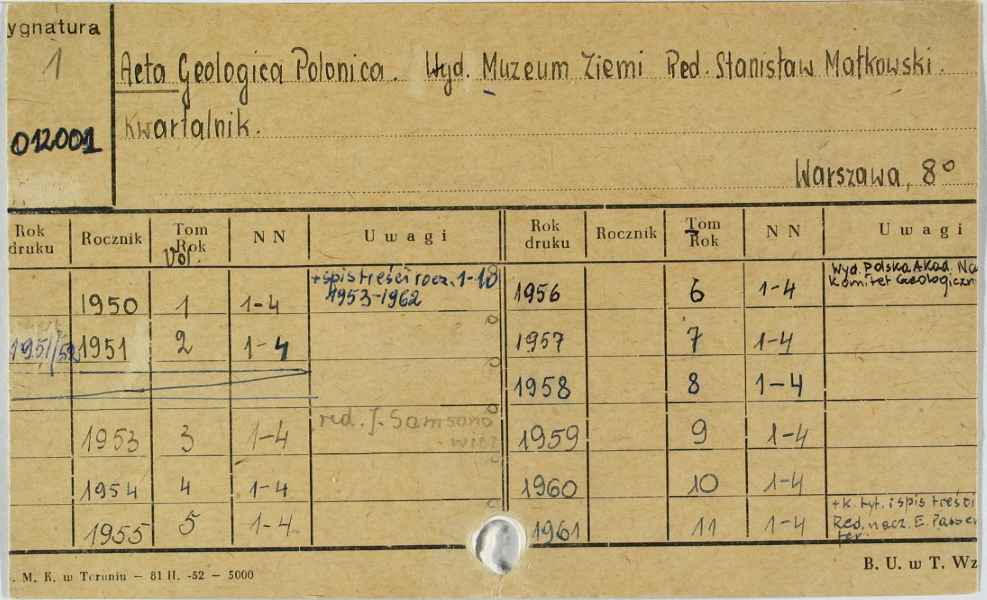 ygnatura
1
012001
Acta Geologica Polonica. Wyd. Muzeum Ziemi Red. Stanisław Małkowski.
Kwartalnik.
Warszawa, 8°
Rok druku Rocznik Tom Rok Vol. N N Uwagi Rok druku Rocznik Tom Rok N N Uwagi
1950 1 1-4 +spis treści rocz. 1-10 1953-1962 1956 6 1-4 Wyd. Polska Akad. Na Komitet Geologiczn
1951/52 1951 2 1-4 1957 7 1-4
1958 8 1-4
1953 3 1-4 red. J. Samsono wicz 1959 9 1-4
1954 4 1-4 1960 10 1-4
1955 5 1-4 1961 11 1-4 +k. tyt. i spis treści Red. nacz. E. Passen
. M. K. w Toruniu — 81 II. -52 — 5000
B. U. w T. Wz